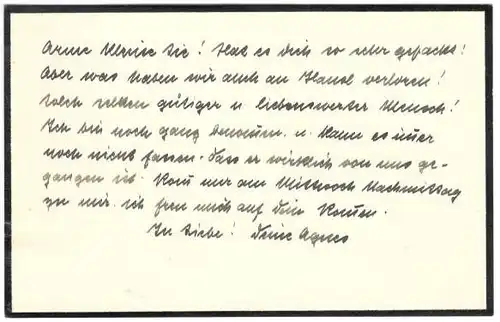 Arme kleine Sie! Hat es dich so sehr gepackt!
Aber was haben wir auch an Hansl verloren!
Solch selten gütiger u liebenswerter Mensch!
Ich bin noch ganz benom̄en. u. kann es im̄er
noch nicht fassen. dass er wirklich von uns ge-
gangen ist. Kom̄ nur am Mittwoch Nachmittag
zu mir. ich freu mich auf dein Kom̄en.
In Liebe! deine Agnes